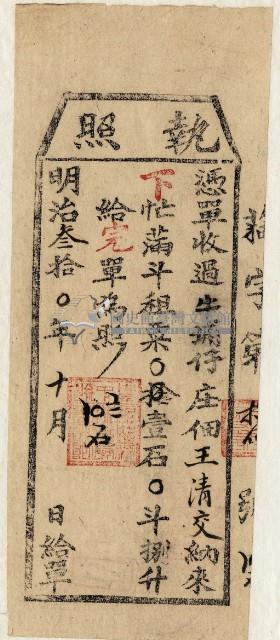 執照
憑單收過牛埔仔庄佃王清交納來
下忙滿斗租米〇拾壹石〇斗捌升
給完單為照
明治叁拾〇年十月 日給單
字第 號